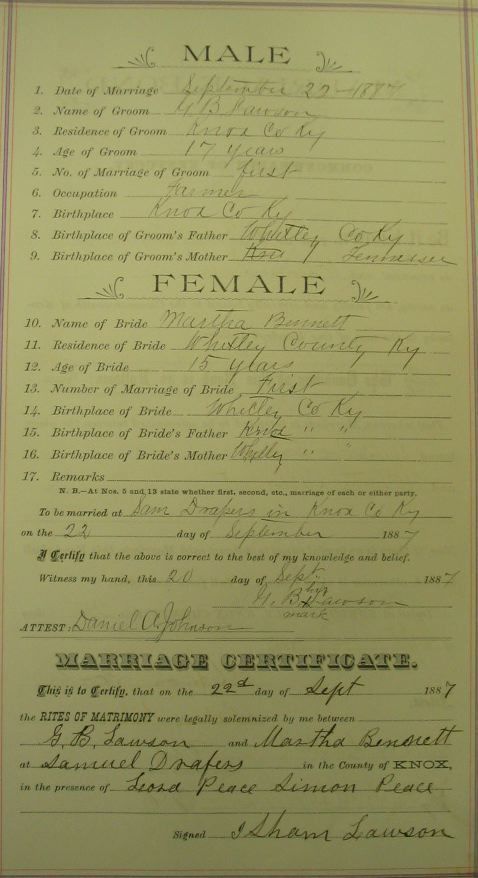 MALE
1. Date of Marriage September 22 1887
2. Name of Groom G B Lawson
3. Residence of Groom Knox Co Ky
4. Age of Groom 17 years
5. No. of Marriage of Groom first
6. Occupation Farmer
7. Birthplace Knox Co Ky
8. Birthplace of Groom's Father Whitley Co Ky
9. Birthplace of Groom's Mother Tennessee
FEMALE
10. Name of Bride Martha Bennett
11. Residence of Bride Whitley County Ky
12. Age of Bride 15 years
13. Number of Marriage of Bride First
14. Birthplace of Bride Whitley Co Ky
15. Birthplace of Bride's Father Knox " "
16. Birthplace of Bride's Mother Whitley " "
17. Remarks
N. B.—At Nos. 5 and 13 state whether first, second, etc., marriage of each or either party.
To be married at Sam Drapers in Knox Co Ky
on the 22 day of September 1887
I Certify that the above is correct to the best of my knowledge and belief.
Witness my hand, this 20 day of Sept. 1887
his
G. B. x Lawson
mark
ATTEST: Daniel A. Johnson
MARRIAGE CERTIFICATE.
This is to Certify, that on the 22d day of Sept 1887
the RITES OF MATRIMONY were legally solemnized by me between
G. B. Lawson and Martha Bennett
at Samuel Drapers in the County of KNOX,
in the presence of Peace Simon Peace
Signed Isham Lawson